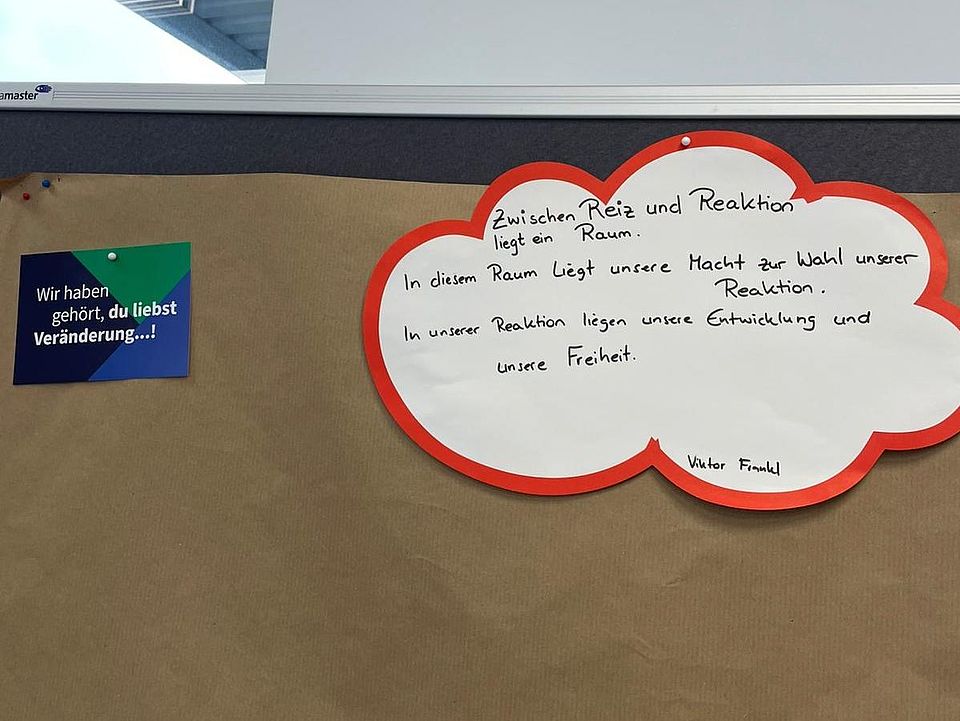 amaster
Wir haben
gehört, du liebst
Veränderung...!
Zwischen Reiz und Reaktion
liegt ein Raum.
In diesem Raum liegt unsere Macht zur Wahl unserer
Reaktion.
In unserer Reaktion liegen unsere Entwicklung und
unsere Freiheit.
Viktor Frankl